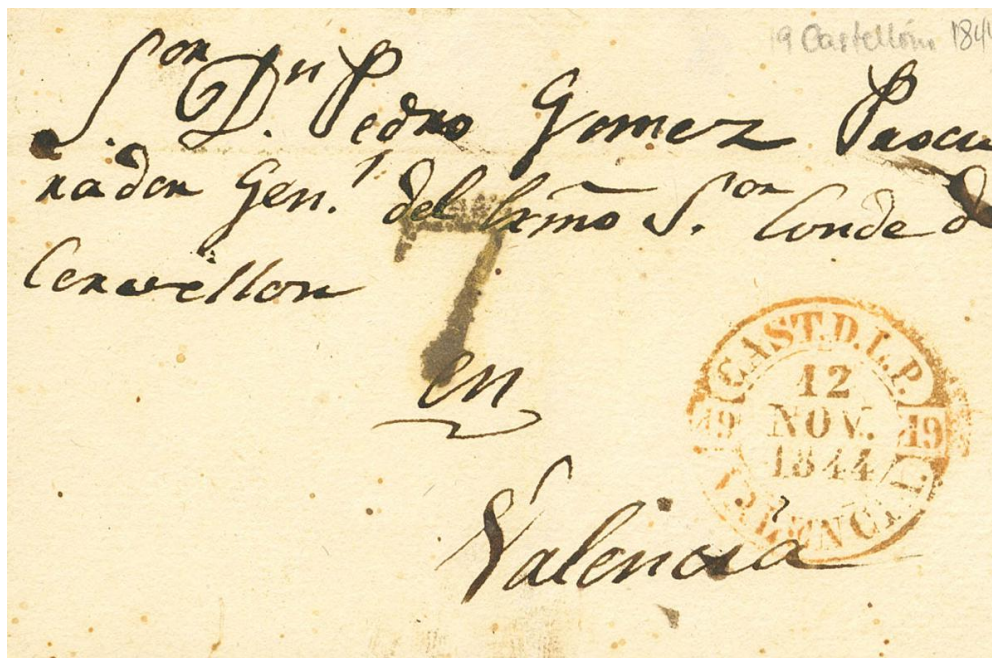 19 Castellón 184
S.or D.n Pedro Gomez Pascu
rador Gen.l del Exmo S.or Conde de
Cervellon
7
en
Valencia
CAST.D.L.P.
12
NOV.
1844
19 19
VALENCIA.